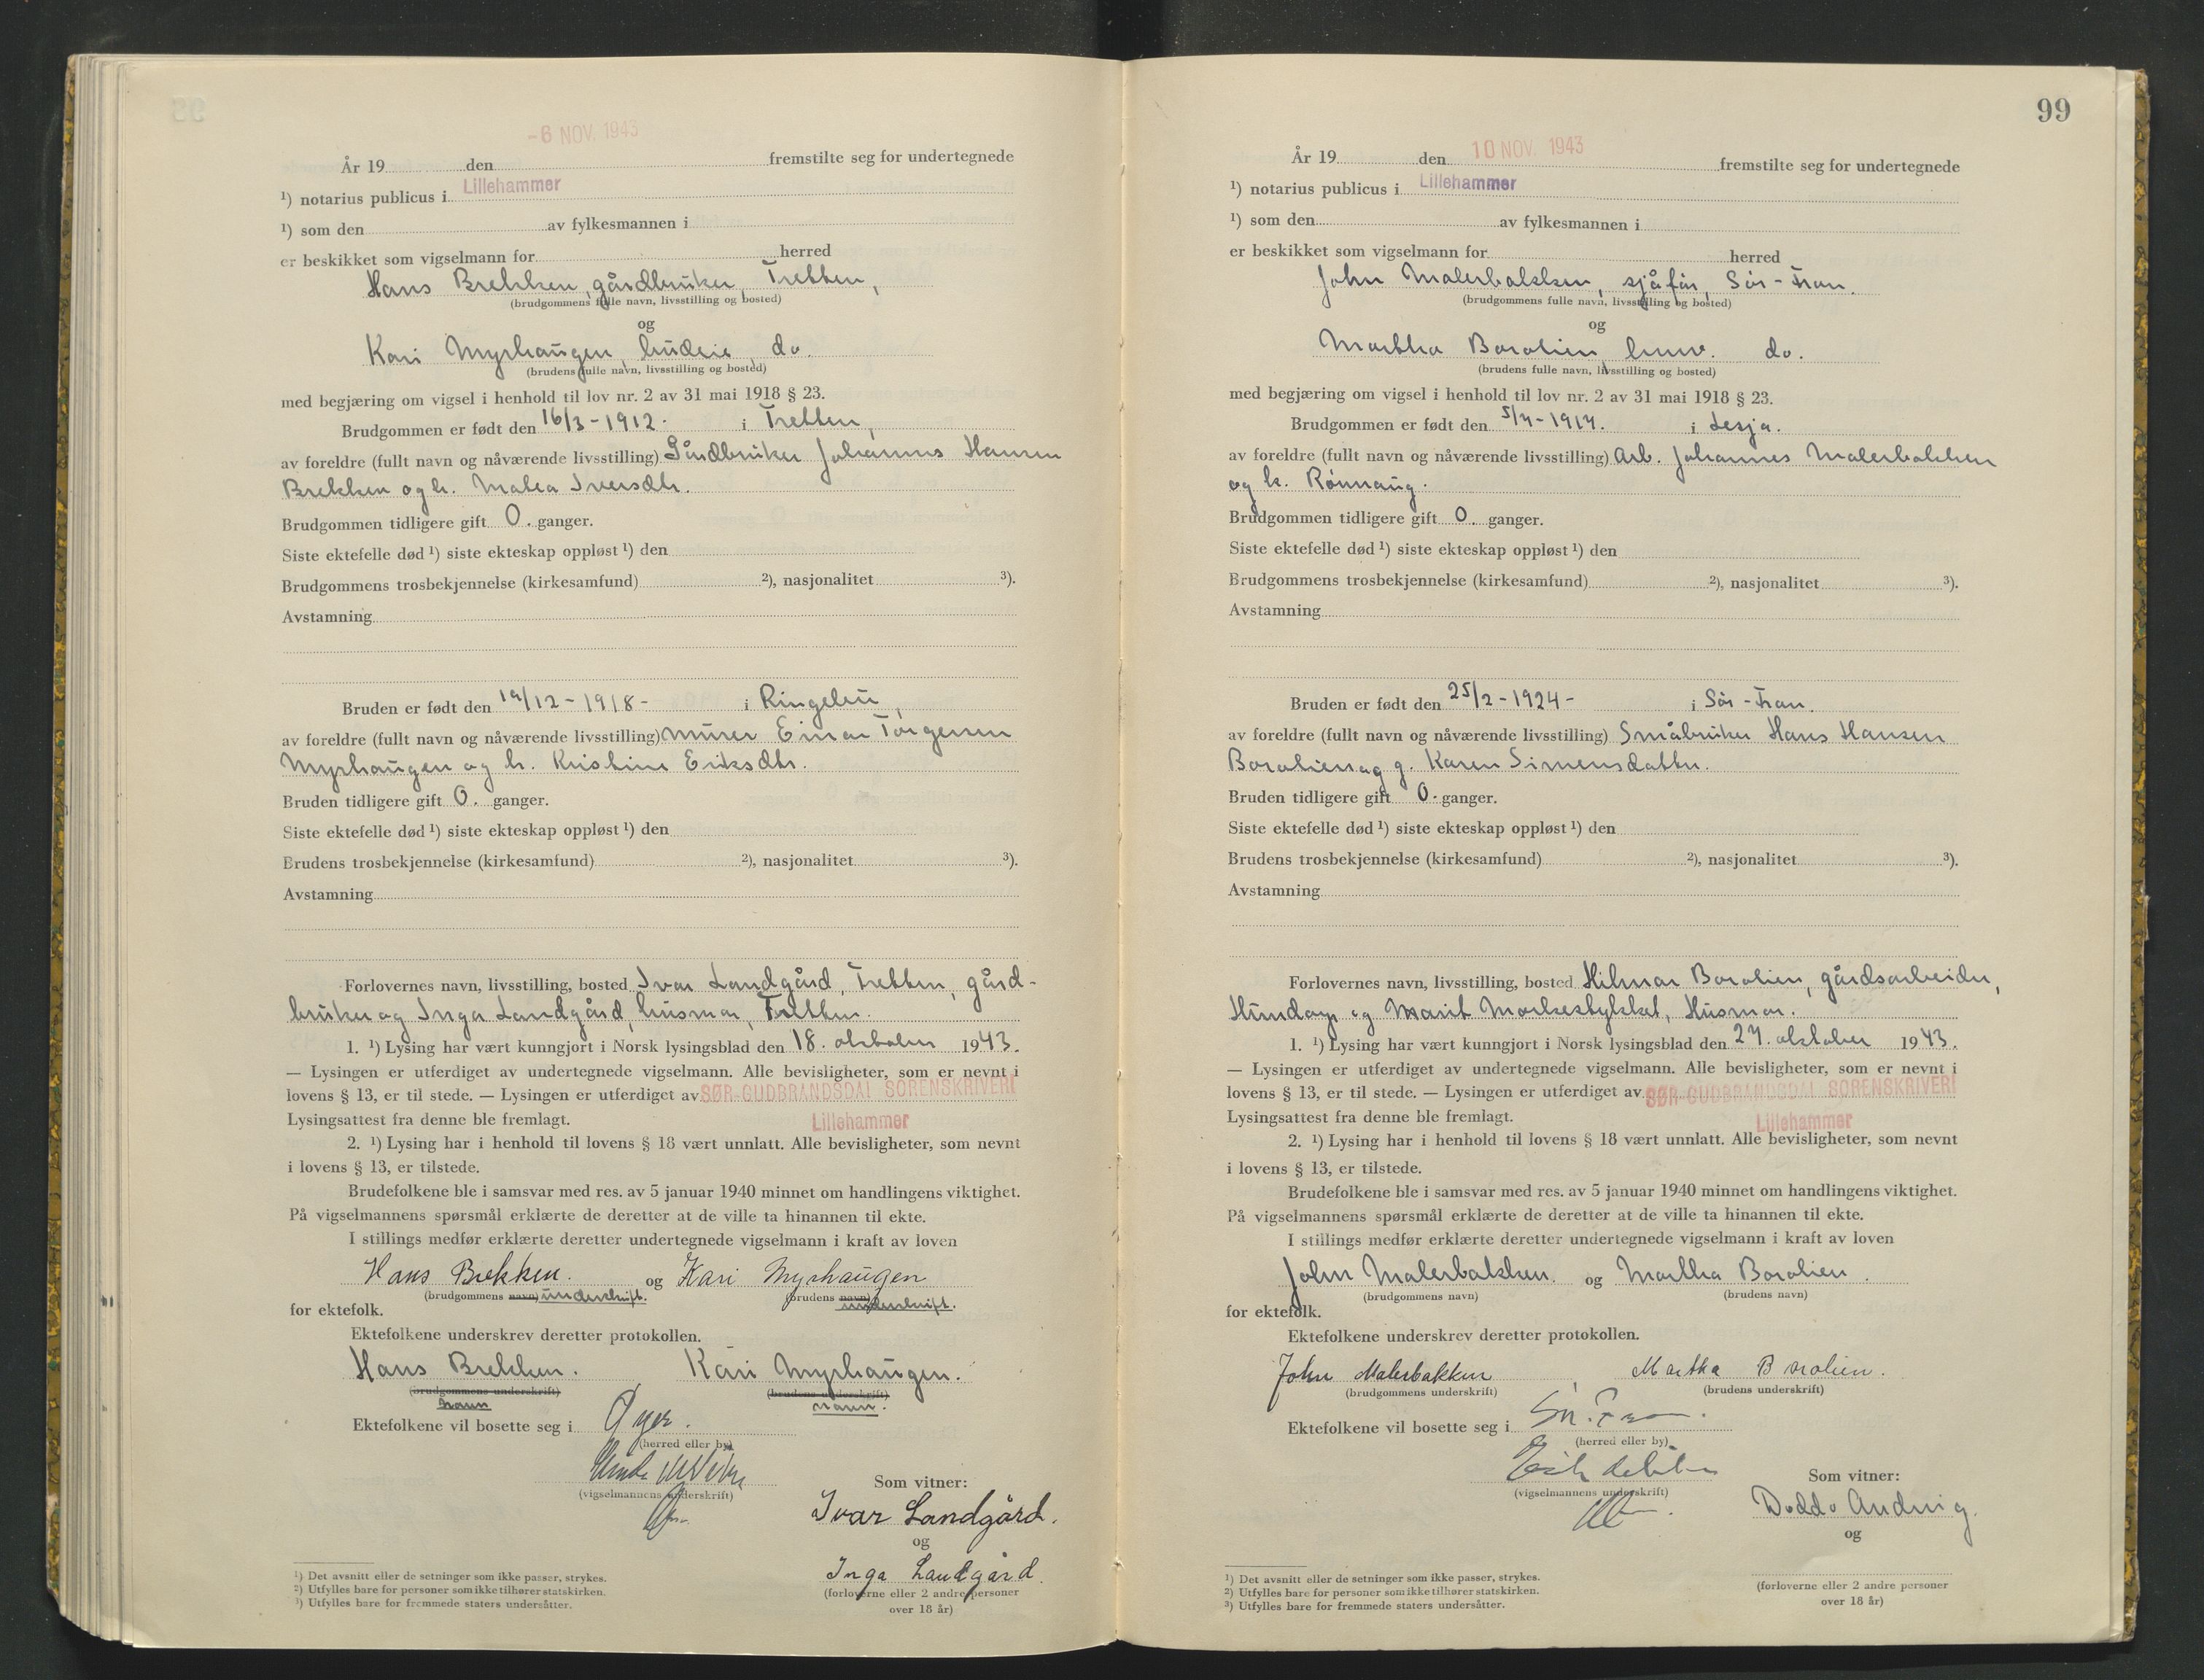 -6 NOV. 1943
År 19 den fremstilte seg for undertegnede
¹) notarius publicus i Lillehammer
¹) som den av fylkesmannen i
er beskikket som vigselmann for herred
Hans Brekken, gårdbruker, Tretten,
(brudgommens fulle navn, livsstilling og bosted)
og
Kari Myrhaugen, budeie, do.
(brudens fulle navn, livsstilling og bosted)
med begjæring om vigsel i henhold til lov nr. 2 av 31 mai 1918 § 23.
Brudgommen er født den 16/3-1912. i Tretten,
av foreldre (fullt navn og nåværende livsstilling) Gårdbruker Johannes Hansen
Brekken og h. Malea Iversdtr.
Brudgommen tidligere gift 0. ganger.
Siste ektefelle død ¹) siste ekteskap oppløst ¹) den
Brudgommens trosbekjennelse (kirkesamfund) ²), nasjonalitet ³).
Avstamning
Bruden er født den /12-1918- i Ringebu,
av foreldre (fullt navn og nåværende livsstilling) murer Einar Torgersen
Myrhaugen og h. Kristine Eriksdtr.
Bruden tidligere gift 0. ganger.
Siste ektefelle død ¹) siste ekteskap oppløst ¹) den
Brudens trosbekjennelse (kirkesamfund) ²), nasjonalitet ³).
Avstamning
Forlovernes navn, livsstilling, bosted Ivar Landgård, Tretten, gård-
bruker og Inga Landgård, husmor, Tretten.
1. ¹) Lysing har vært kunngjort i Norsk lysingsblad den 18. oktober 1943.
— Lysingen er utferdiget av undertegnede vigselmann. Alle bevisligheter, som er nevnt i
lovens § 13, er til stede. — Lysingen er utferdiget av SØR-GUDBRANDSDAL SORENSKRIVERI
Lysingsattest fra denne ble fremlagt. Lillehammer
2. ¹) Lysing har i henhold til lovens § 18 vært unnlatt. Alle bevisligheter, som nevnt
i lovens § 13, er tilstede.
Brudefolkene ble i samsvar med res. av 5 januar 1940 minnet om handlingens viktighet.
På vigselmannens spørsmål erklærte de deretter at de ville ta hinannen til ekte.
I stillings medfør erklærte deretter undertegnede vigselmann i kraft av loven
Hans Brekken. og Kari Myrhaugen
(brudgommens navn) underskrift. (brudens navn) underskrift.
for ektefolk.
Ektefolkene underskrev deretter protokollen.
Hans Brekken. Kari Myrhaugen.
(brudgommens underskrift) (brudens underskrift)
navn navn.
Ektefolkene vil bosette seg i Øyer.
(herred eller by)
(vigselmannens underskrift)
Som vitner:
Ivar Landgård.
og
Inga Landgård.
(forloverne eller 2 andre personer
over 18 år)
¹) Det avsnitt eller de setninger som ikke passer, strykes.
²) Utfylles bare for personer som ikke tilhører statskirken.
³) Utfylles bare for fremmede staters undersåtter.
99
10 NOV. 1943
År 19 den fremstilte seg for undertegnede
¹) notarius publicus i Lillehammer
¹) som den av fylkesmannen i
er beskikket som vigselmann for herred
John Malerbakken, sjåfør, Sør-Fron.
(brudgommens fulle navn, livsstilling og bosted)
og
Martha Borolien, do.
(brudens fulle navn, livsstilling og bosted)
med begjæring om vigsel i henhold til lov nr. 2 av 31 mai 1918 § 23.
Brudgommen er født den i Lesja.
av foreldre (fullt navn og nåværende livsstilling) Arb. Johannes Malerbakken
og h. Rønnaug.
Brudgommen tidligere gift 0. ganger.
Siste ektefelle død ¹) siste ekteskap oppløst ¹) den
Brudgommens trosbekjennelse (kirkesamfund) ²), nasjonalitet ³).
Avstamning
Bruden er født den 25/2-1924- i Sør-Fron.
av foreldre (fullt navn og nåværende livsstilling) Småbruker Hans Hansen
Borolien og g. Karen Simensdatter.
Bruden tidligere gift 0. ganger.
Siste ektefelle død ¹) siste ekteskap oppløst ¹) den
Brudens trosbekjennelse (kirkesamfund) ²), nasjonalitet ³).
Avstamning
Forlovernes navn, livsstilling, bosted Hilmar Borolien, gårdsarbeider,
Hundorp og Marit Markestykket, Husmor.
1. ¹) Lysing har vært kunngjort i Norsk lysingsblad den 27. oktober 1943.
— Lysingen er utferdiget av undertegnede vigselmann. Alle bevisligheter, som er nevnt i
lovens § 13, er til stede. — Lysingen er utferdiget av SØR-GUDBRANDSDAL SORENSKRIVERI
Lysingsattest fra denne ble fremlagt. Lillehammer
2. ¹) Lysing har i henhold til lovens § 18 vært unnlatt. Alle bevisligheter, som nevnt
i lovens § 13, er tilstede.
Brudefolkene ble i samsvar med res. av 5 januar 1940 minnet om handlingens viktighet.
På vigselmannens spørsmål erklærte de deretter at de ville ta hinannen til ekte.
I stillings medfør erklærte deretter undertegnede vigselmann i kraft av loven
John Malerbakken. og Martha Borolien.
(brudgommens navn) (brudens navn)
for ektefolk.
Ektefolkene underskrev deretter protokollen.
John Malerbakken Martha Borolien.
(brudgommens underskrift) (brudens underskrift)
Ektefolkene vil bosette seg i Sør-Fron.
(herred eller by)
(vigselmannens underskrift)
Som vitner:
Doddo Andvig.
og
(forloverne eller 2 andre personer
over 18 år)
¹) Det avsnitt eller de setninger som ikke passer, strykes.
²) Utfylles bare for personer som ikke tilhører statskirken.
³) Utfylles bare for fremmede staters undersåtter.